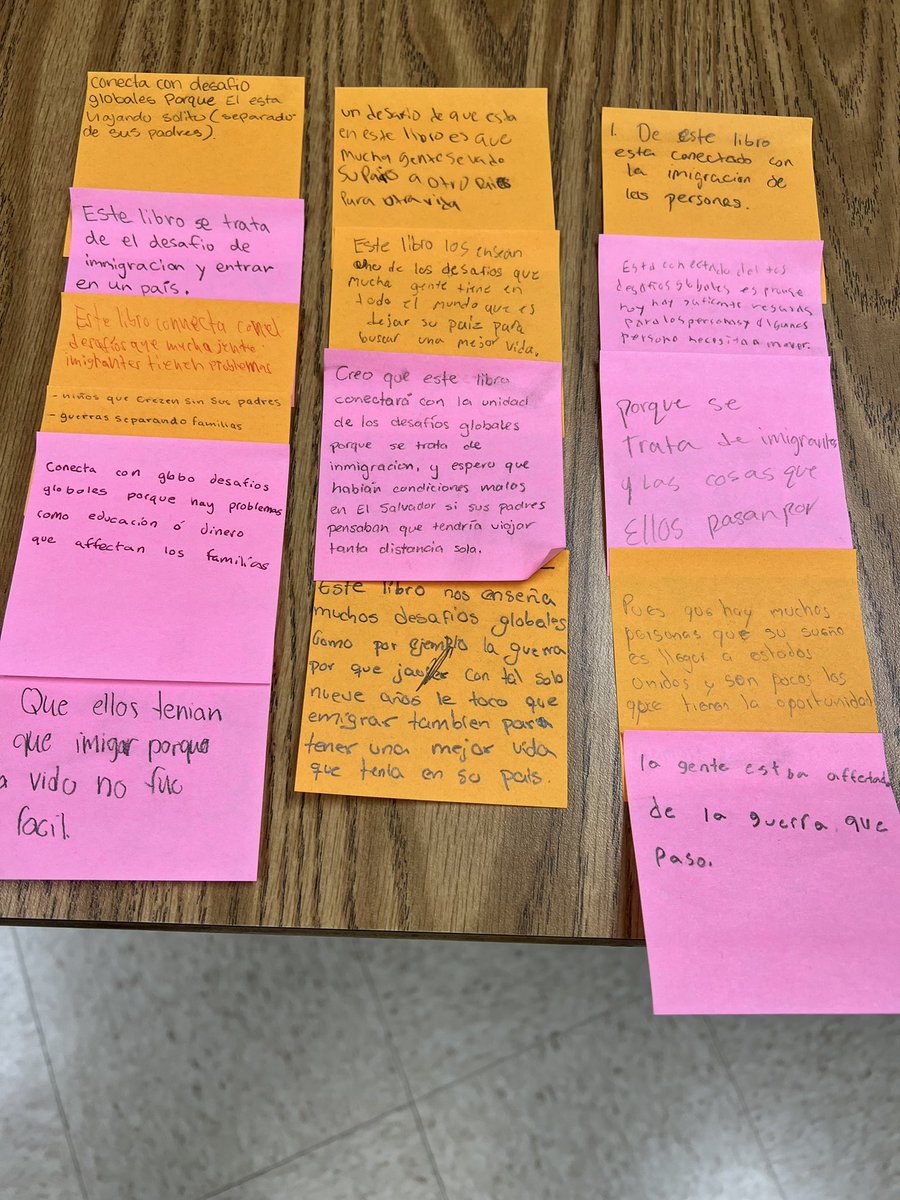 conecta con desafio
globales Porque El esta
viajando solito (separado
de sus padres).
Este libro se trata
de el desafio de
immigracion y entrar
en un país.
Este libro connecta con el
desafios que mucha jente
imigrantes tienen problemas
- niños que crezen sin sus padres
- guerras separando familias
Conecta con globo desafios
globales porque hay problemas
como educación ó dinero
que affectan los familias
Que ellos tenian
que imigar porque
a vida no fue
facil.
un desafio de que esta
en este libro es que
mucha gente se
su Pais a otro Pais
Para otra vida
Este libro los ensean
uno de los desafios que
mucha gente tiene en
todo el mundo que es
dejar su paiz para
buscar una mejor vida.
Creo que este libro
conectará con la unidad
de los desafíos globales
porque se trata de
inmigracion, y espero que
habían condiciones malas
en El Salvador si sus padres
pensaban que tendría viajar
tanta distancia sola.
Este libro nos enseña
muchos desafios globales
Como por ejemplo la guerra
por que javier con tal solo
nueve años le toco que
emigrar tambien para
tener una mejor vida
que tenia en su pais.
1. De este libro
esta conectado con
la imigracion de
las personas.
Esta conectado del los
desafios globales es porque
no hay suficientes
para los personas y algunes
persono necesitan mover.
porque se
trata de imigrants
y las cosas que
Ellos pasan por
Pues qos hay muchos
personas que su sueño
es llegar a estados
unidos y son pocos los
que tienen la oportunidad
la gente estba affectad
de la guerra que
paso.